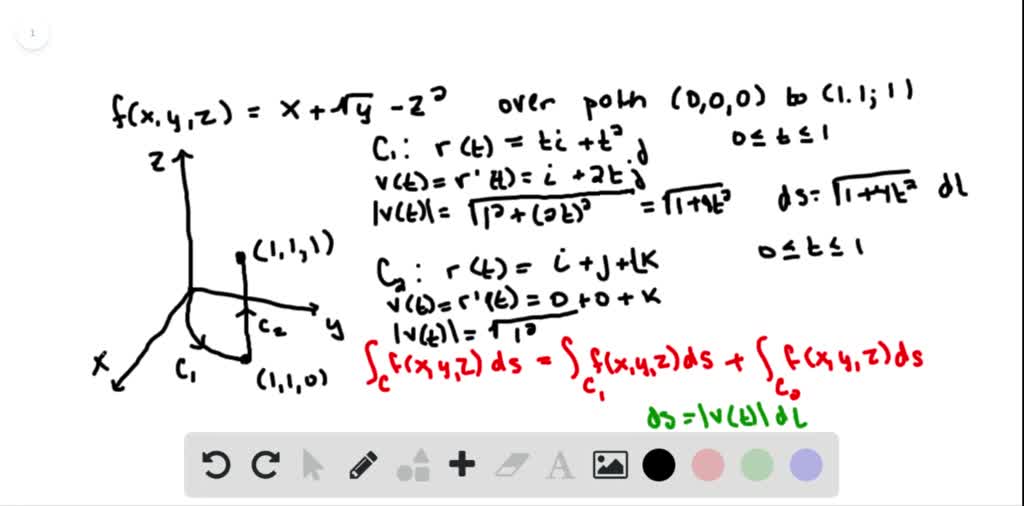 1
f(x,y,z) = x + √y - z² over path (0,0,0) to (1,1,1)
C₁: r(t) = ti + t²j 0 ≤ t ≤ 1
v(t) = r'(t) = i + 2tj
|v(t)| = √1² + (2t)² = √1+4t² ds = √1+4t² dt
C₂: r(t) = i + j + tk 0 ≤ t ≤ 1
v(t) = r'(t) = 0 + 0 + k
|v(t)| = √1²
∫C f(x,y,z) ds = ∫C₁ f(x,y,z) ds + ∫C₂ f(x,y,z) ds
ds = |v(t)| dt
z
(1,1,1)
y
C₂
x
C₁
(1,1,0)
A